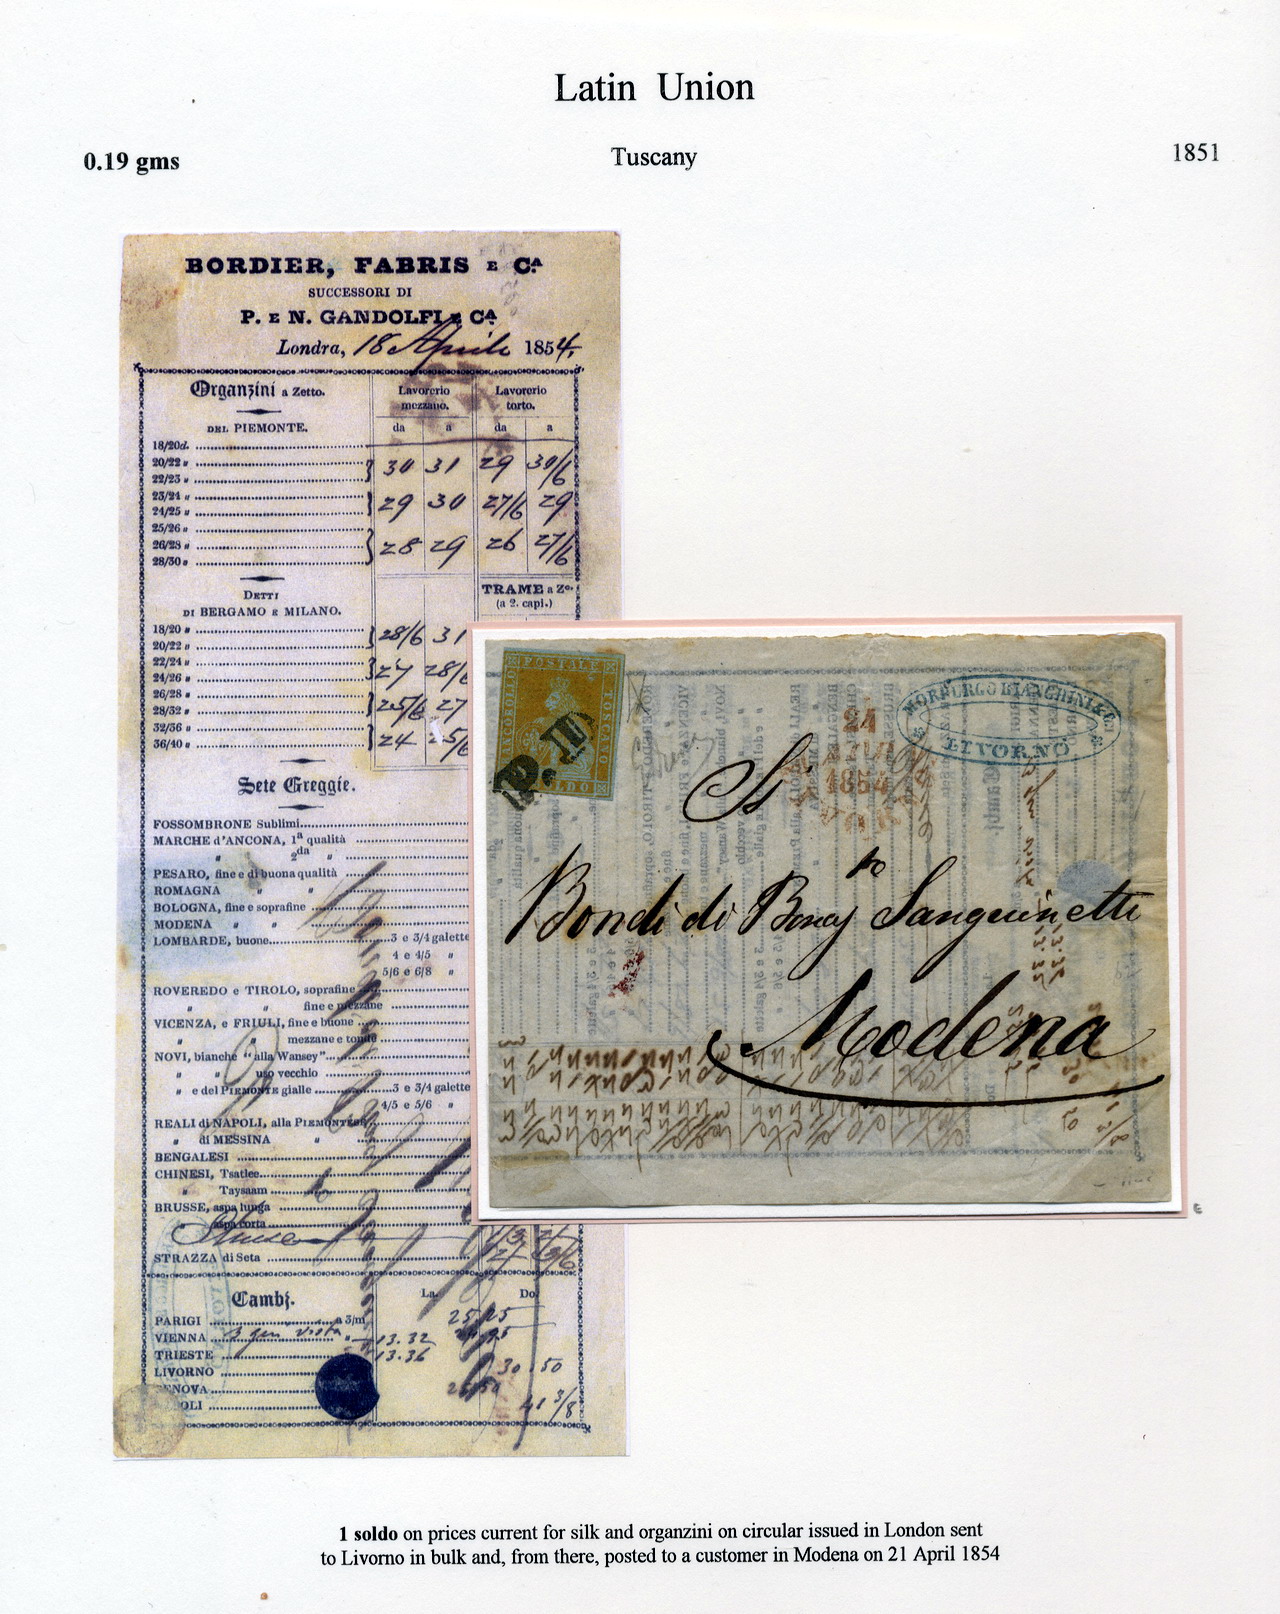 Latin Union
0.19 gms
Tuscany
1851
BORDIER, FABRIS E Cᴬ
SUCCESSORI DI
P. E N. GANDOLFI E Cᴬ
Londra, 18 Aprile 1854.
Organzini a Zetto.
Lavorerio mezzano.
Lavorerio torto.
DEL PIEMONTE.
da a da a
18/20d.
20/22 "
22/23 "
30 31 29 30/6
23/24 "
24/25 "
29 30 27/6 29
25/26 "
26/28 "
28/30 "
28 29 26 27/6
DETTI
DI BERGAMO E MILANO.
TRAME a Zo.
(a 2. capi.)
18/20 "
20/22 "
28/6 31
22/24 "
24/26 "
27 28/6
26/28 "
28/32 "
25/6 27
32/36 "
36/40 "
24 25/6
Sete Greggie.
FOSSOMBRONE Sublimi
MARCHE d'ANCONA, 1a qualità
" 2da "
PESARO, fine e di buona qualità
ROMAGNA " "
BOLOGNA, fine e soprafine
MODENA " "
LOMBARDE, buone 3 e 3/4 galette
4 e 4/5 "
5/6 e 6/8 "
ROVEREDO e TIROLO, soprafine
" " fine e mezzane
VICENZA, e FRIULI, fine e buone
" " mezzane e tonde
NOVI, bianche "alla Wansey"
" " uso vecchio
" e del PIEMONTE gialle 3 e 3/4 galette
4/5 e 5/6 "
REALI di NAPOLI, alla PIEMONTESE
" di MESSINA "
BENGALESI
CHINESI, Tsatlee
" Taysaam
BRUSSE, aspa lunga
" aspa corta
STRAZZA di Seta
Cambj.
La. Do.
PARIGI a 3/m 25
VIENNA " 13.32
TRIESTE 13.36
LIVORNO 30.50
GENOVA
41 3/8
FRANCOBOLLO POSTALE TOSCANO
SOLDO
P.D
MORPURGO BIANCHINI & C.
LIVORNO
1854
Si
Bondi di Bonaj Sanguinetti
Modena
1 soldo on prices current for silk and organzini on circular issued in London sent
to Livorno in bulk and, from there, posted to a customer in Modena on 21 April 1854